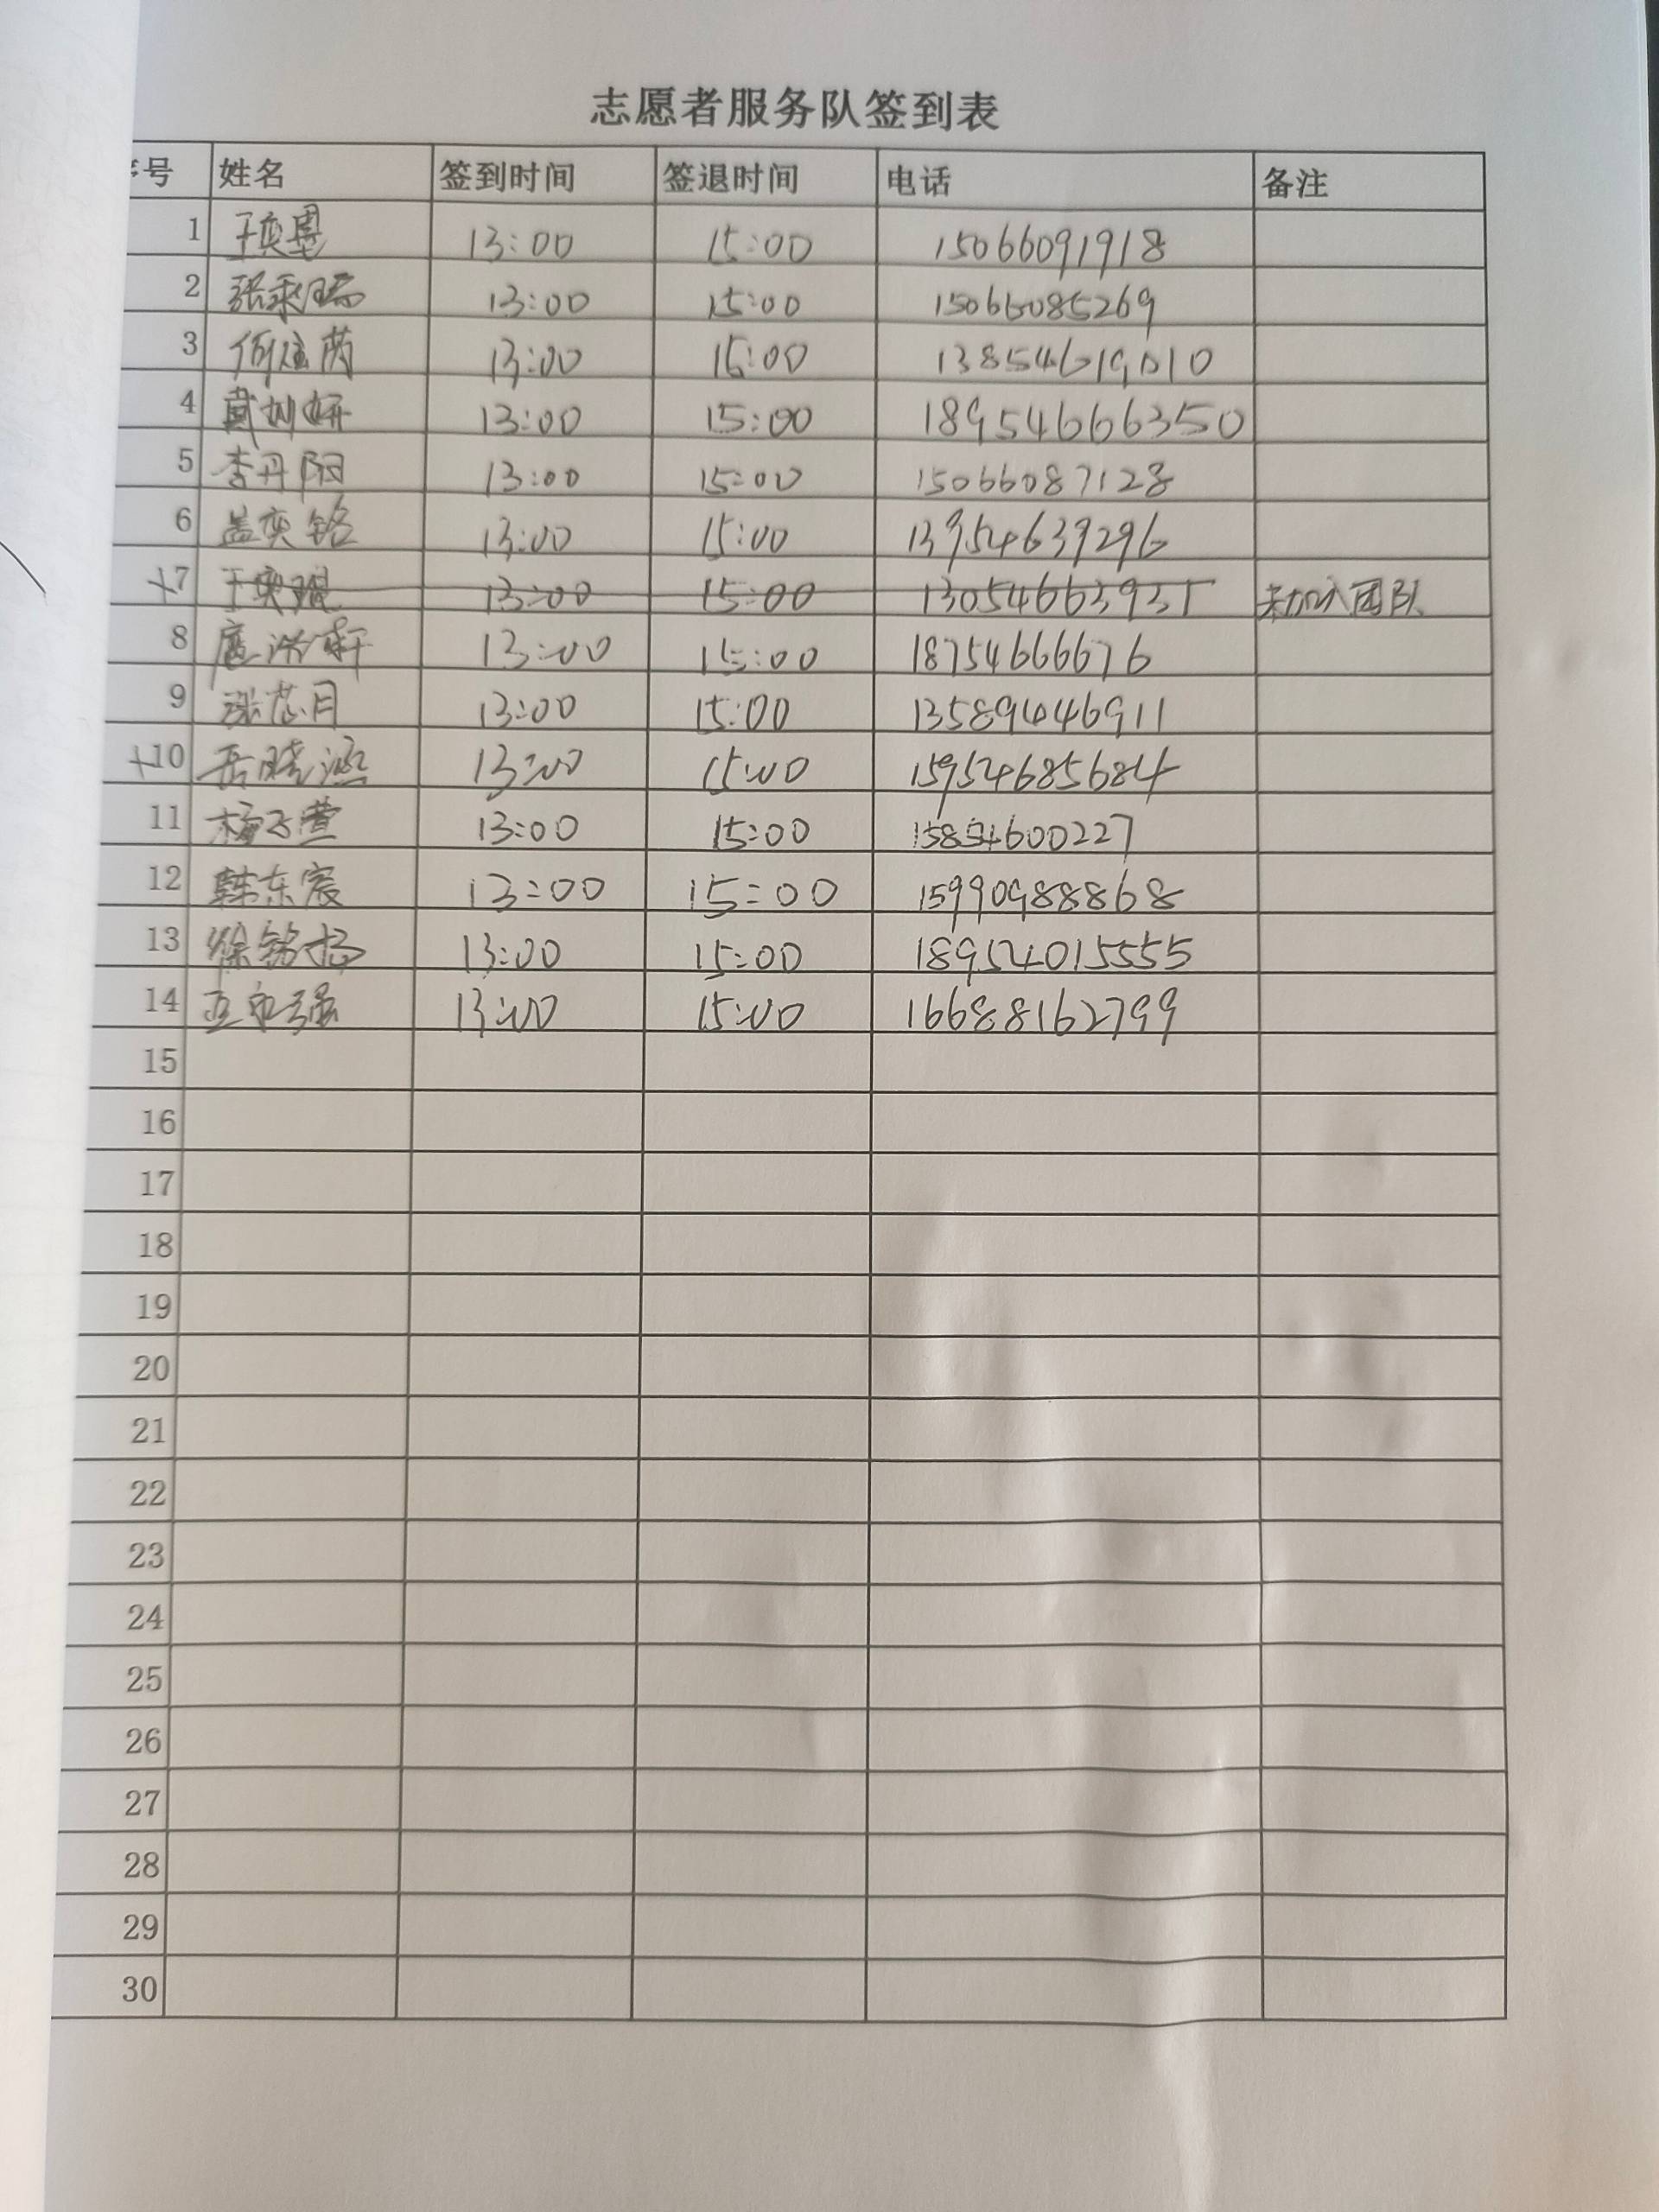 志愿者服务队签到表
序号 姓名 签到时间 签退时间 电话 备注
1 13:00 15:00 15066091918
2 13:00 15:00 15066085269
3 13:00 15:00 13854619010
4 13:00 15:00 18954666350
5 李丹阳 13:00 15:00 15066087128
6 盖奕铭 13:00 15:00 13954639296
7 13:00 15:00 13054663935 未加入团队
8 13:00 15:00 18754666676
9 张芯月 13:00 15:00 13589446911
10 岳晓涵 13:00 15:00 15954685684
11 杨子萱 13:00 15:00 15854600227
12 韩东宸 13:00 15:00 15990988868
13 徐铭扬 13:00 15:00 18954015555
14 13:00 15:00 16688162799
15
16
17
18
19
20
21
22
23
24
25
26
27
28
29
30